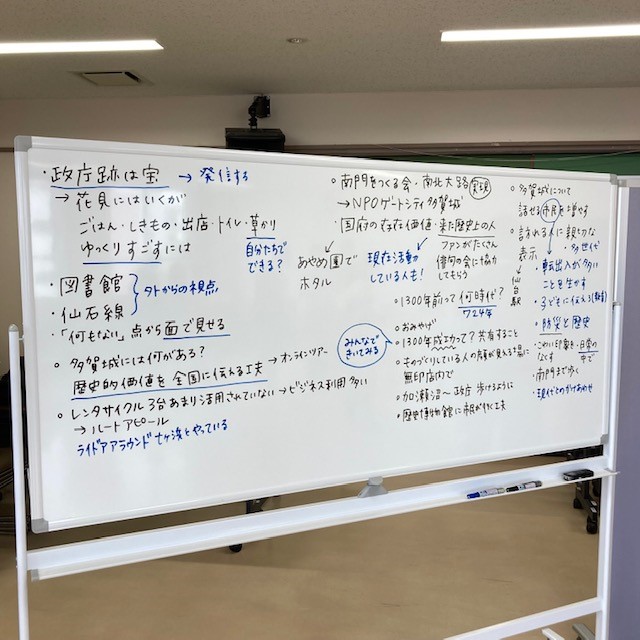 ・政庁跡は宝 → 発信する
→花見にはいくが
ごはん・しきもの・出店・トイレ・草かり
ゆっくりすごすには
自分たちで
できる?
・図書館
・仙石線
外からの視点
・「何もない」点から面で見せる
○多賀城には何がある?
歴史的価値を全国に伝える工夫 → オンラインツアー
○レンタサイクル3台あまり活用されていない → ビジネス利用多い
→ルートアピール
ライドアラウンド七ヶ浜とやっている
○南門をつくる会・南北大路 実現
→NPOゲートシティ多賀城
・国府の存在価値・来た歴史上の人
ファンがたくさん
俳句の会に協力
してもらう
あやめ園で
ホタル
現在活動
している人も!
○1300年前って何時代?
724年
○おみやげ
○1300年成功って?共有すること
みんなで
きいてみる
○ものづくりしている人の顔が見える場に
無印店内で
○加瀬沼〜政庁 歩けるように
○歴史博物館に市民が行く工夫
○多賀城について
話せる市民を増やす
○訪れる人に親切な
表示
仙台駅
・多世代
・転出入が多い
ことを生かす
・子どもに伝える(教育)
・防災と歴史
日常の
中で
・南門まで歩く
・現代とのかけあわせ